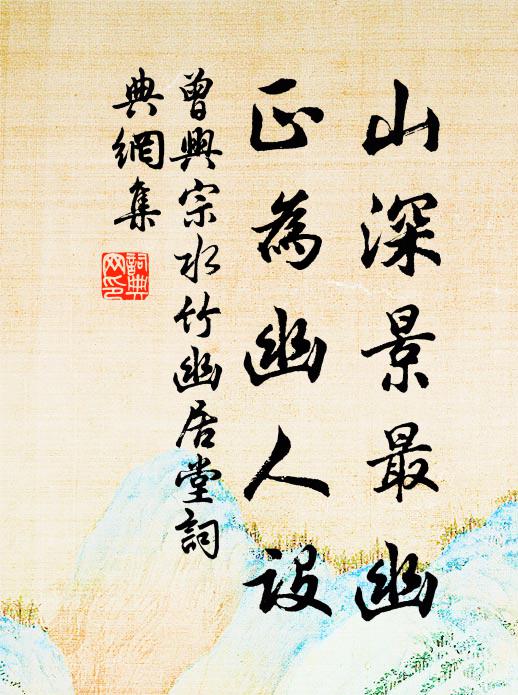 山深景最幽
正為幽人設
曾興宗水竹幽居堂詞
典網集
詞典網印